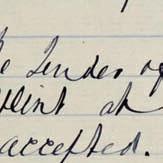 he Tender of
Flint at
accepted.